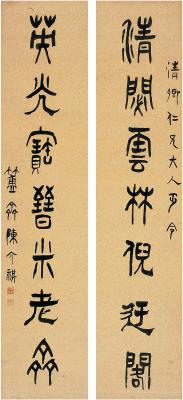 清卿仁兄大人正今
清閟雲林倪迂閣
英光寶晉米老盦
簠齋陳介祺